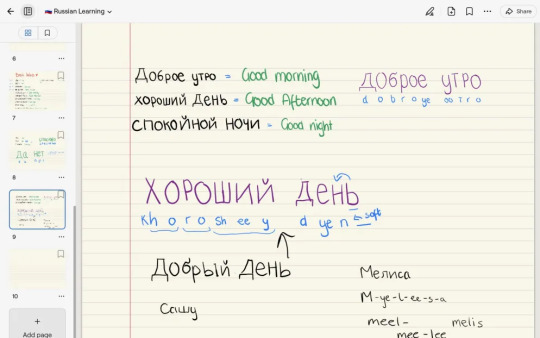 Russian Learning
Share
Доброе утро = Good morning
хороший День = Good Afternoon
СПОКОЙНОЙ НОЧИ = Good night
Доброе утро
d o b r o ye oo t r o
ХОРОШИЙ ДЕНЬ
Kh o r o sh ee y d ye n ← soft
Добрый День
Сашу
Мелиса
M-ye-l-ee-s-a
meel- melis
mee-lee
6
7
Да нет
8
9
10
+
Add page